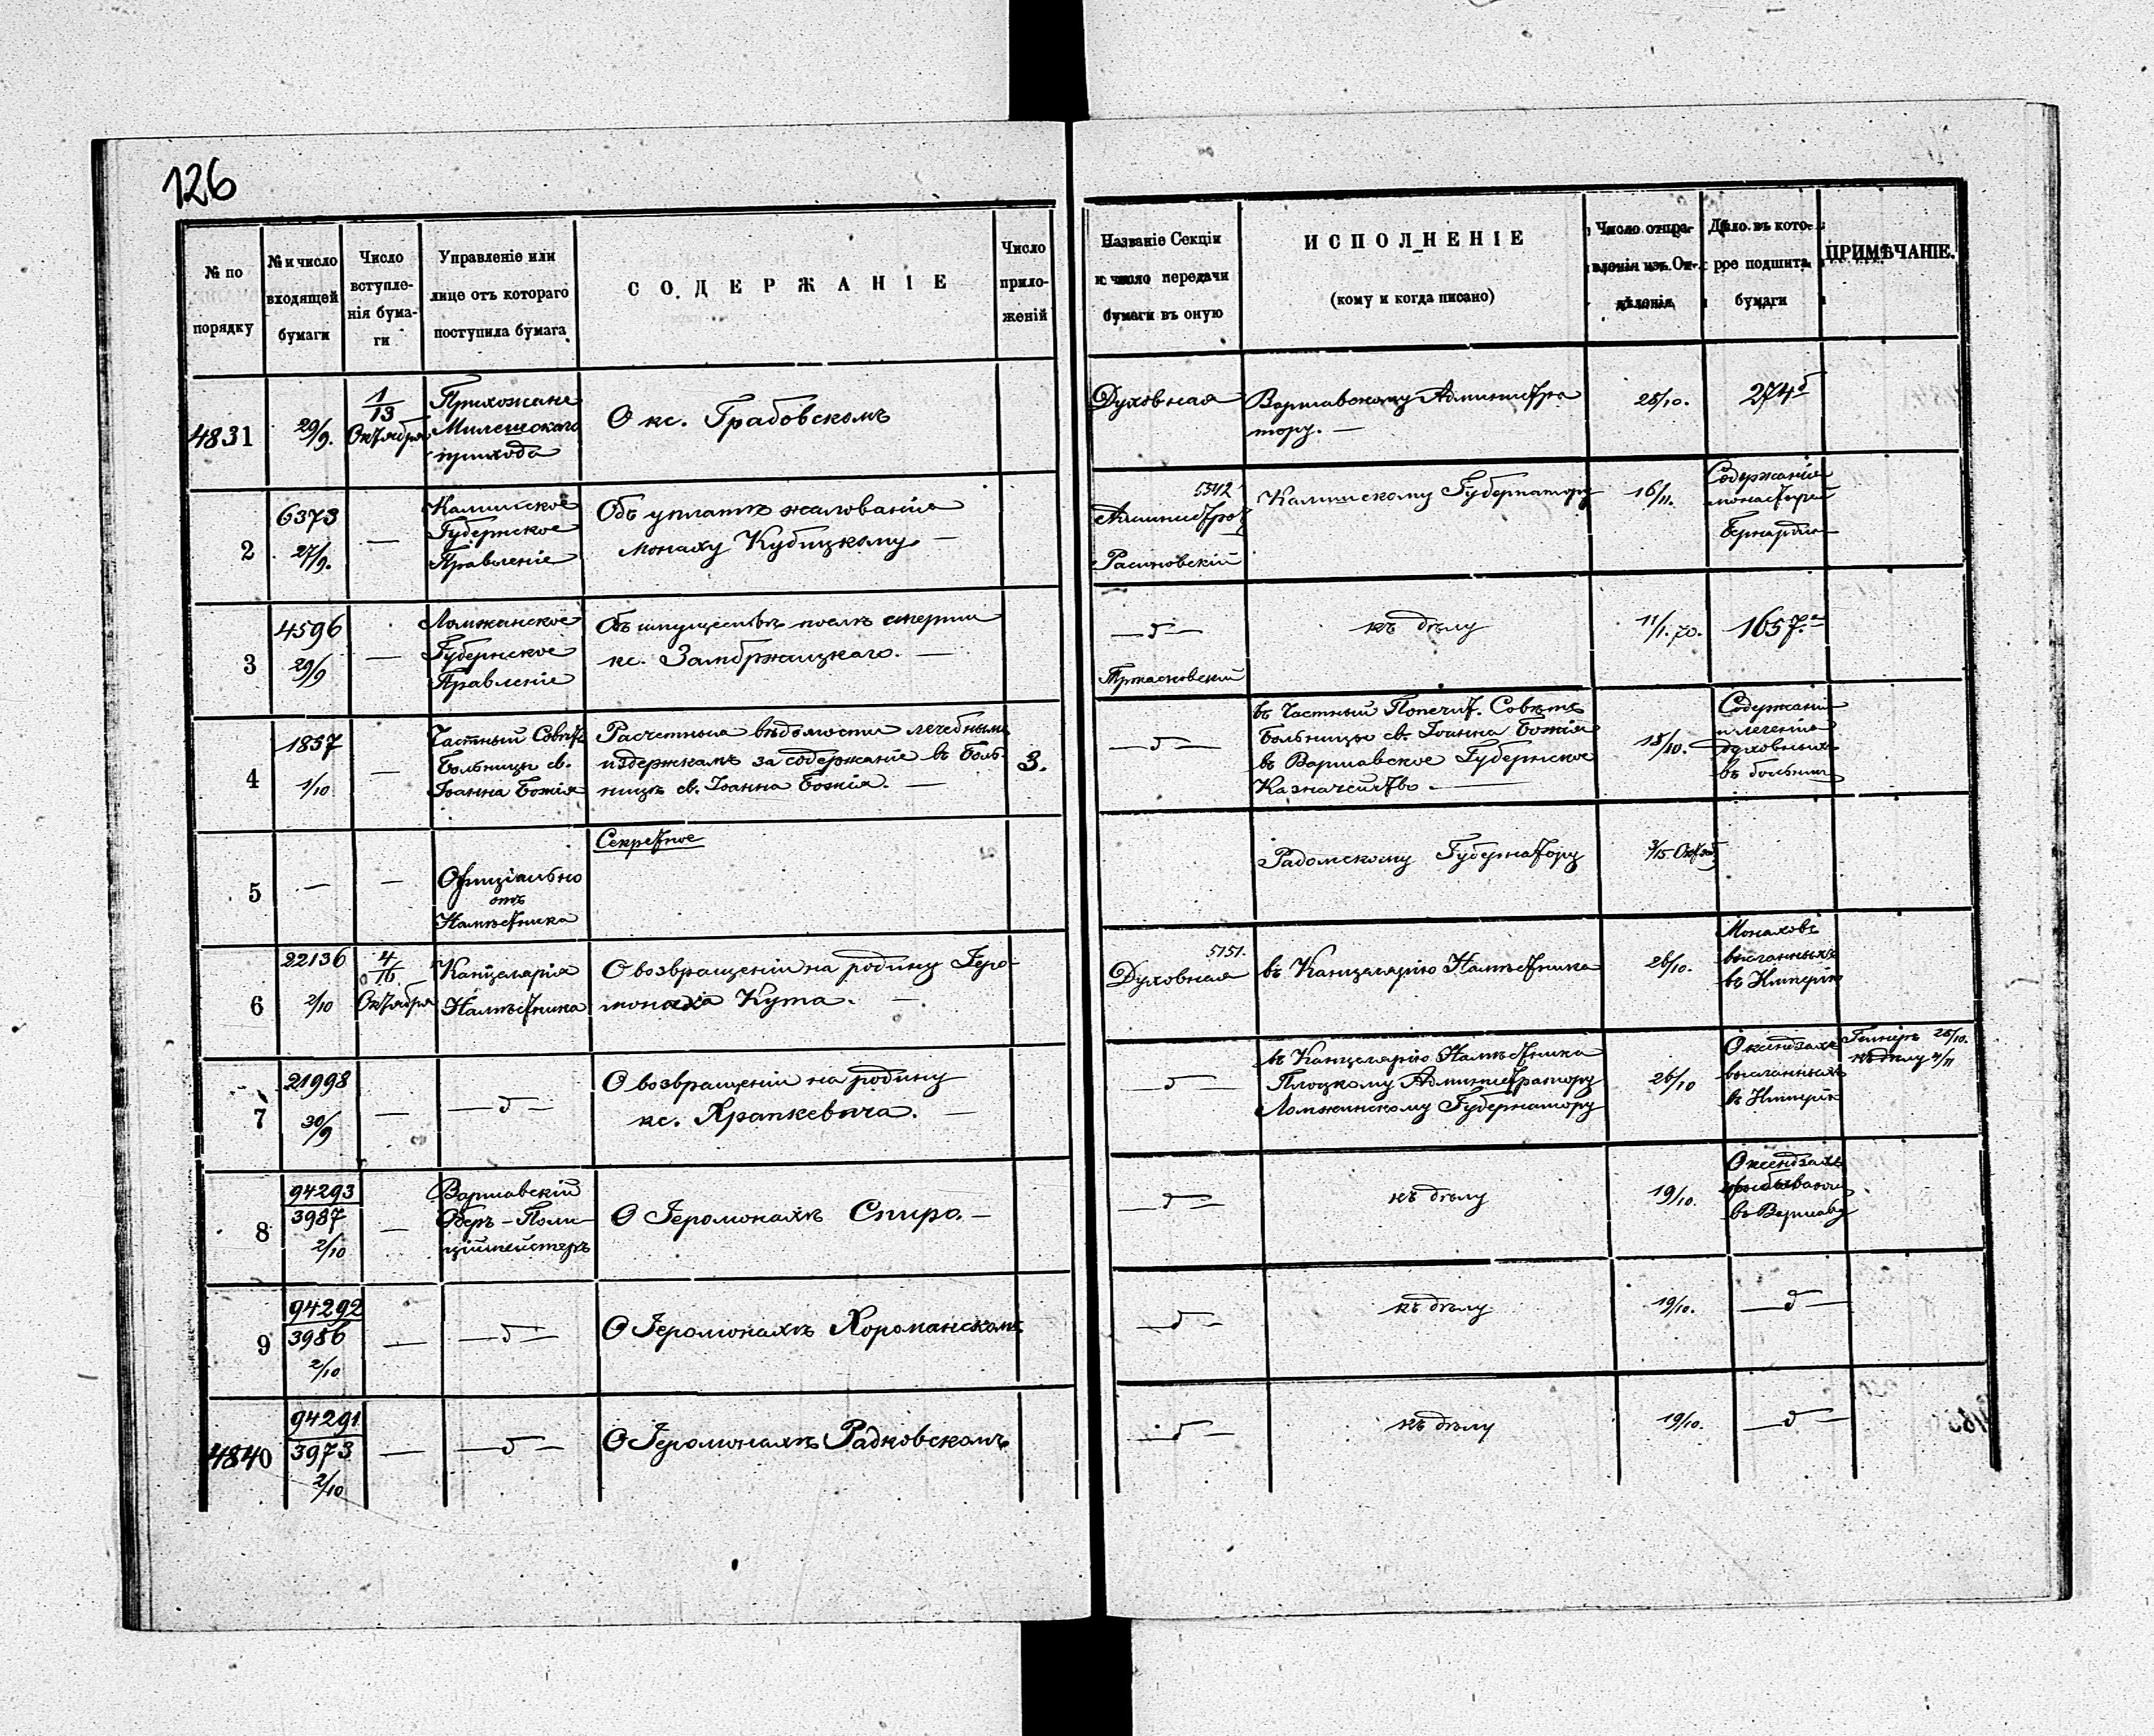 126
№ по порядку
№ и число входящей бумаги
Число вступленія бумаги
Управленіе или лице отъ котораго поступила бумага
СОДЕРЖАНІЕ
Число приложеній
Названіе Секціи и число передачи бумаги въ оную
ИСПОЛНЕНІЕ
(кому и когда писано)
Число отправленія изъ Отдѣленія
Дѣло въ которое подшита бумаги
ПРИМѢЧАНІЕ.
4831
29/9.
1/13
Октября
Прихожане
прихода
О кс. Грабовскомъ
Духовная
Варшавскому Администра
тору. —
28/10.
274б
2
6373
27/9.
—
Калишское
Губернское
Правленіе
Объ уплатѣ жалованія
монаху Кубицкому. —
Калишскому Губернатору
16/11.
Содержаніе
3
4596
29/9
—
Ломжинское
Губернское
Правленіе
Объ имуществѣ послѣ смерти
кс. Замбржицкаго. —
—ъ—
къ дѣлу
11/1. 70.
1657.а
4
1857
1/10
—
Частный Совѣтъ
Больницы св.
Іоанна Божія
Расчетныя вѣдомости лечебнымъ
издержкамъ за содержаніе въ Боль
ницѣ св. Іоанна Божія. —
3.
—ъ—
въ Частный Попечит. Совѣтъ
Больницы св. Іоанна Божія
въ Варшавское Губернское
Казначейство. —
18/10.
Содержаніе
и леченіе
духовныхъ
въ больниц
5
—
—
Офиціально
отъ
Намѣстника
Секретное
Радомскому Губернатору
3/15 Октяб
6
22136
2/10
4/16
Октября
Канцелярія
Намѣстника
О возвращеніи на родину Іеро-
монаха Кута. —
5151.
Духовная
въ Канцелярію Намѣстника
26/10.
Монаховъ
высланныхъ
въ Имперію
7
21998
30/9
—
—ъ—
О возвращеніи на родину
кс. Храпкевича. —
—ъ—
въ Канцелярію Намѣстника
Плоцкому Администратору
Ломжинскому Губернатору
26/10
О ксендзахъ
высланныхъ
въ Имперію
28/10.
къ дѣлу
8
94293
3987
2/10
—
Варшавскій
Оберъ-Поли-
ціймейстеръ
О Іеромонахѣ Спиро. —
—ъ—
къ дѣлу
19/10.
О ксендзахъ
въ Варшаву
9
94292
3986
2/10
—
—ъ—
О Іеромонахѣ Хороманскомъ
—ъ—
къ дѣлу
19/10.
—ъ—
4840
94291
3973
2/10
—
—ъ—
О Іеромонахѣ Радковскомъ
—ъ—
къ дѣлу
19/10.
—ъ—